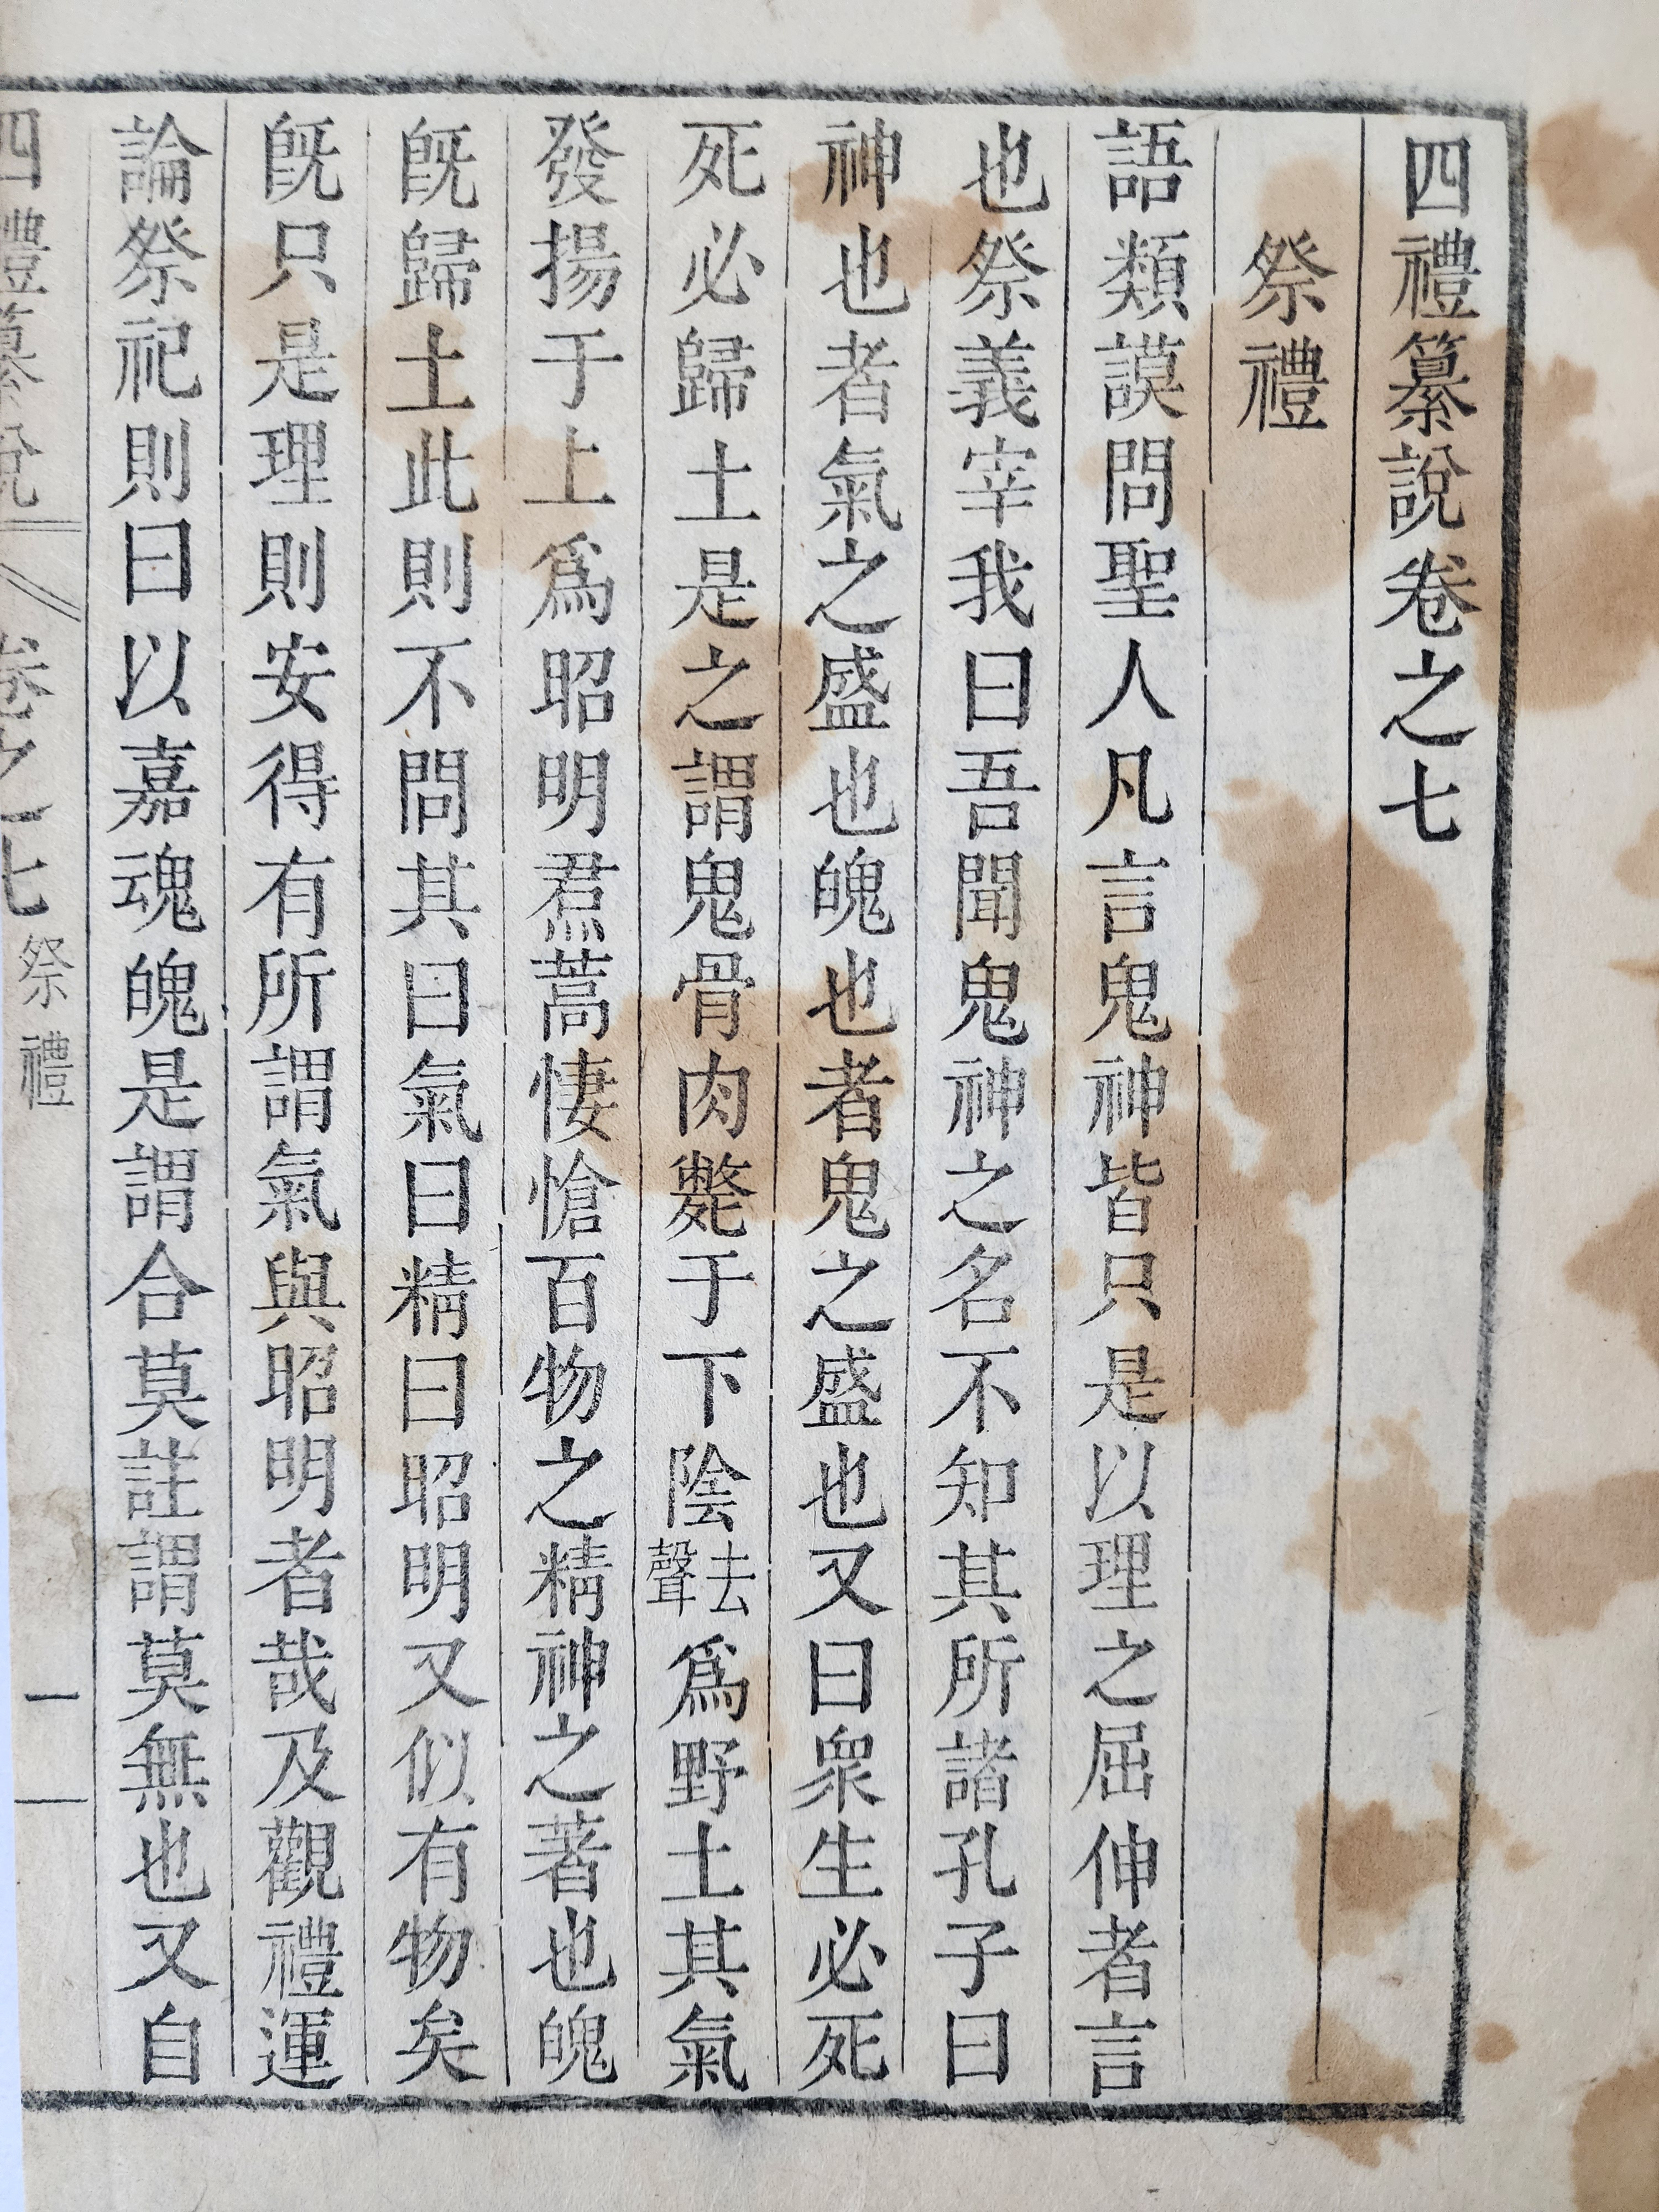 四禮纂說卷之七
祭禮
語類謨問聖人凡言鬼神皆只是以理之屈伸者言
也祭義宰我曰吾聞鬼神之名不知其所諸孔子曰
神也者氣之盛也魄也者鬼之盛也又曰衆生必死
死必歸土是之謂鬼骨肉斃于下陰去聲爲野土其氣
發揚于上爲昭明焄蒿悽愴百物之精神之著也魄
旣歸土此則不問其曰氣曰精曰昭明又似有物矣
旣只是理則安得有所謂氣與昭明者哉及觀禮運
論祭祀則曰以嘉魂魄是謂合莫註謂莫無也又自
四禮纂說 卷之七 祭禮 一